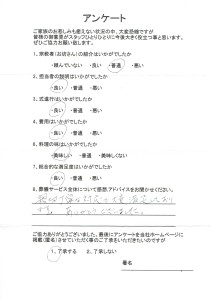 アンケート
ご家族のお悲しみも癒えない状況の中、大変恐縮ですが
皆様の御意見がスタッフひとりひとりに今後大きく役立つ事と思います。
ぜひご協力お願い致します。
1. 宗教者(お坊さん)の紹介はいかがでしたか
・頼んでいない ・良い ・普通 ・悪い
2. 担当者の説明はいかがでしたか
・良い ・普通 ・悪い
3. 式進行はいかがでしたか
・良い ・普通 ・悪い
4. 費用はいかがでしたか
・良い ・普通 ・悪い
5. 料理の味はいかがでしたか
・美味しい ・普通 ・美味しくない
7. 総合的な満足度はいかがでしたか
・良い ・普通 ・悪い
8. 葬儀サービス全体について感想、アドバイスをお聞かせください。
ありがとうございました。
ご協力ありがとうございました。最後にアンケートを当社ホームページに
掲載(匿名)させていただく事のご了承をいただきたいのですが
1. 了承する 2. 了承しない
署名